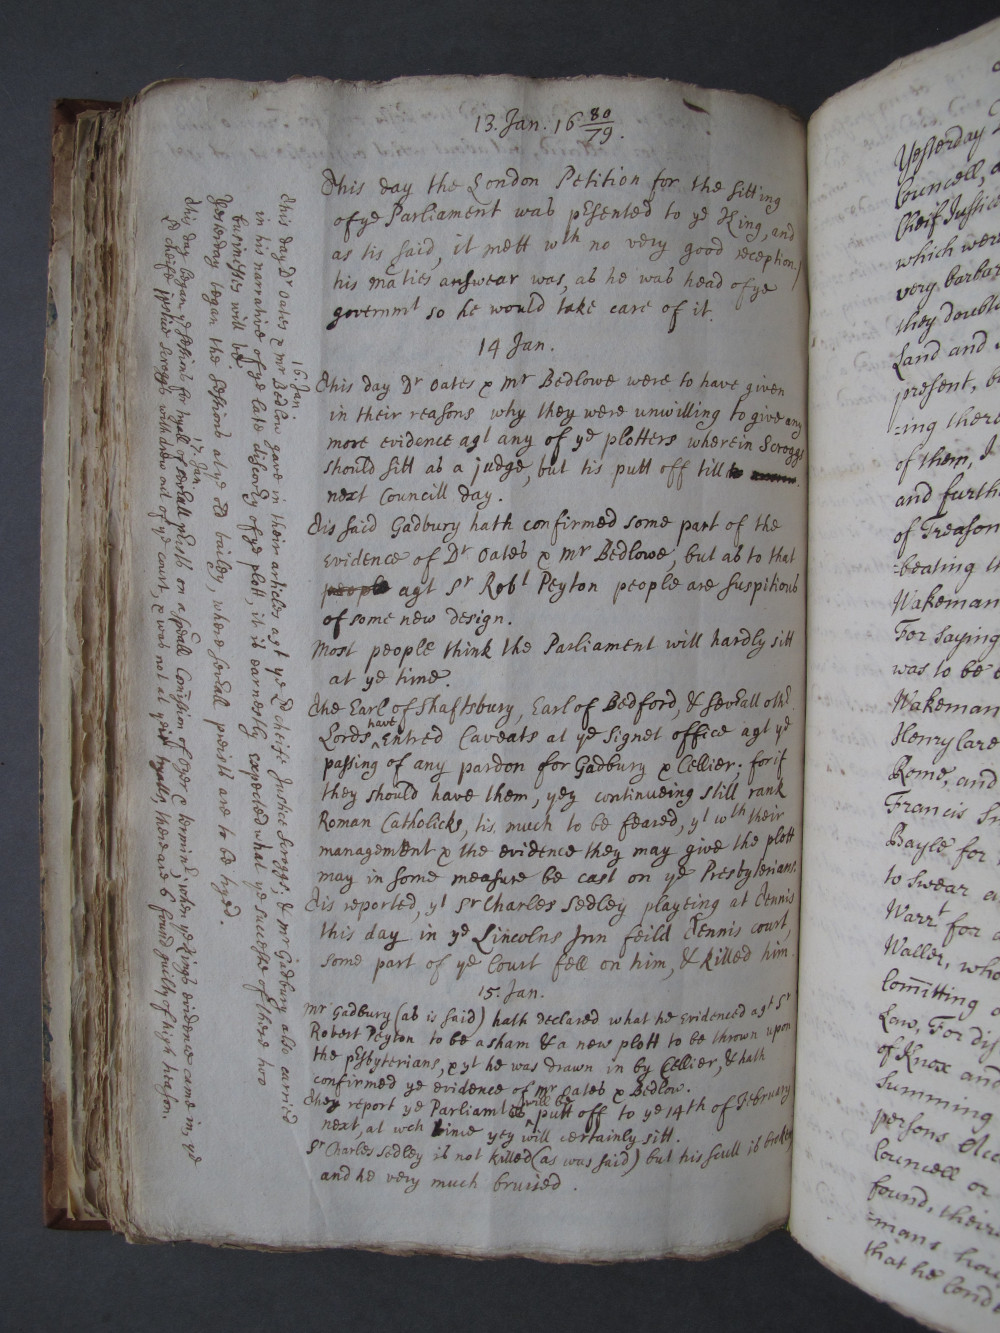 13. Jan. 16 80/79.
This day the London Petition for the sitting
of ye Parliament was psented to ye King, and
as tis said, it mett wth no very good reception/
his maties answear was, as he was head of ye
governmt so he would take care of it.
14 Jan.
This day Dr Oates & Mr Bedlowe were to have given
in their reasons why they were unwilling to give any
more evidence agt any of ye plotters wherein Scroggs
should sitt as a judge, but tis putt off till
next Councill day.
Tis said Gadbury hath confirmed some part of the
evidence of Dr Oates & Mr Bedlowe, but as to that
people agt Sr Robt Peyton people are suspitious
of some new design.
Most people think the Parliament will hardly sitt
at ye time.
The Earl of Shaftsbury, Earl of Bedford, & severall othr
Lords have Entred Caveats at ye Signet office agt ye
passing of any pardon for Gadbury & Cellier; for if
they should have them, yey continueing still rank
Roman Catholicks, tis much to be feared, yt wth their
management & the evidence they may give the plott
may in some measure be cast on ye Presbyterians.
Tis reported, yt Sr Charles Sedley playeing at Tennis
this day in ye Lincolns Inn feild Tennis court,
some part of ye Court fell on him, & killed him.
15. Jan.
Mr Gadbury (as is said) hath declared what he evidenced agst Sr
Robert Peyton to be a sham & a new plott to be thrown upon
the psbyterians, & yt he was drawn in by Cellier, & hath
confirmed ye evidence of Mr Oates & Bedlow.
They report ye Parliamt will be putt off to ye 14th of February
next, at wch time yey will certainly sitt.
Sr Charles Sedley is not killed (as was said) but his scull is broken
and he very much bruised.
16. Jan.
This day Dr Oates & Mr Bedlow gave in their articles agt ye Ld cheife Justice Scroggs; & Mr Gadbury also carried
in his narrative of ye late discovery of ye plott, it is earnestly expected what ye successe of these two
businesses will be.
Yesterday began the Sessions at ye old bailey, where severall preists are to be tryed.
17. Jan.
This day began ye sessions for tryall of severall preists on a speciall Comission of oyer & terminer, when ye Kings evidence came in, ye
Ld cheife Justice Scroggs withdrew out of ye court, & was not at yeir tryalls, there are 6 found guilty of high treason.
Yesterday
Councell, a
Cheif Justice
which were
very barbar
they doubl
Land and
present, b
-ing there
of them, I
and furth
of Treason
-beating th
Wakeman
For saying
was to be
Wakeman
Henry Care
Rome, and
Francis Sm
Bayle for
to swear a
Warrt for a
Waller, who
Comitting a
Law, For dis
of Knox and
Summing
persons
Councell or
found, their
-mians how
that he